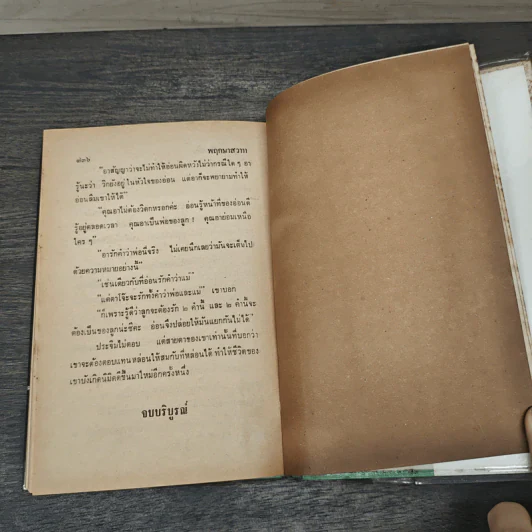 ๘๓๖ พฤกษาสวาท
"อาสัญญาว่าจะไม่ทำให้อ่อนผิดหวังไม่ว่ากรณีใด ๆ อา
รู้นะว่า วีกยังอยู่ในหัวใจของอ่อน แต่อาก็จะพยายามทำให้
อ่อนลืมเขาให้ได้"
"คุณอาไม่ต้องวิตกหรอกค่ะ อ่อนรู้หน้าที่ของอ่อนดี
รู้อยู่ตลอดเวลา คุณอาเป็นพ่อของลูก! คุณอาย่อมเหนือ
ใคร ๆ"
"อารักคำว่าพ่อนี่จริง ไม่เคยนึกเลยว่ามันจะเต็มไป
ด้วยความหมายอย่างนี้"
"เช่นเดียวกับที่อ่อนรักคำว่าแม่"
"แต่ตาโจ๊ะจะรักทั้งคำว่าพ่อและแม่" เขาบอก
"ก็เพราะรู้ดีว่าลูกจะต้องรัก ๒ คำนี้ และ ๒ คำนี้จะ
ต้องเป็นของลูกน่ะซีคะ อ่อนจึงปล่อยให้มันแยกกันไม่ได้"
ประจิมไม่ตอบ แต่สายตาของเขาเท่านั้นที่บอกว่า
เขาจะต้องตอบแทนหล่อนให้สมกับที่หล่อนได้ ทำให้ชีวิตของ
เขาบังเกิดนิมิตดีขึ้นมาใหม่อีกครั้งหนึ่ง
จบบริบูรณ์